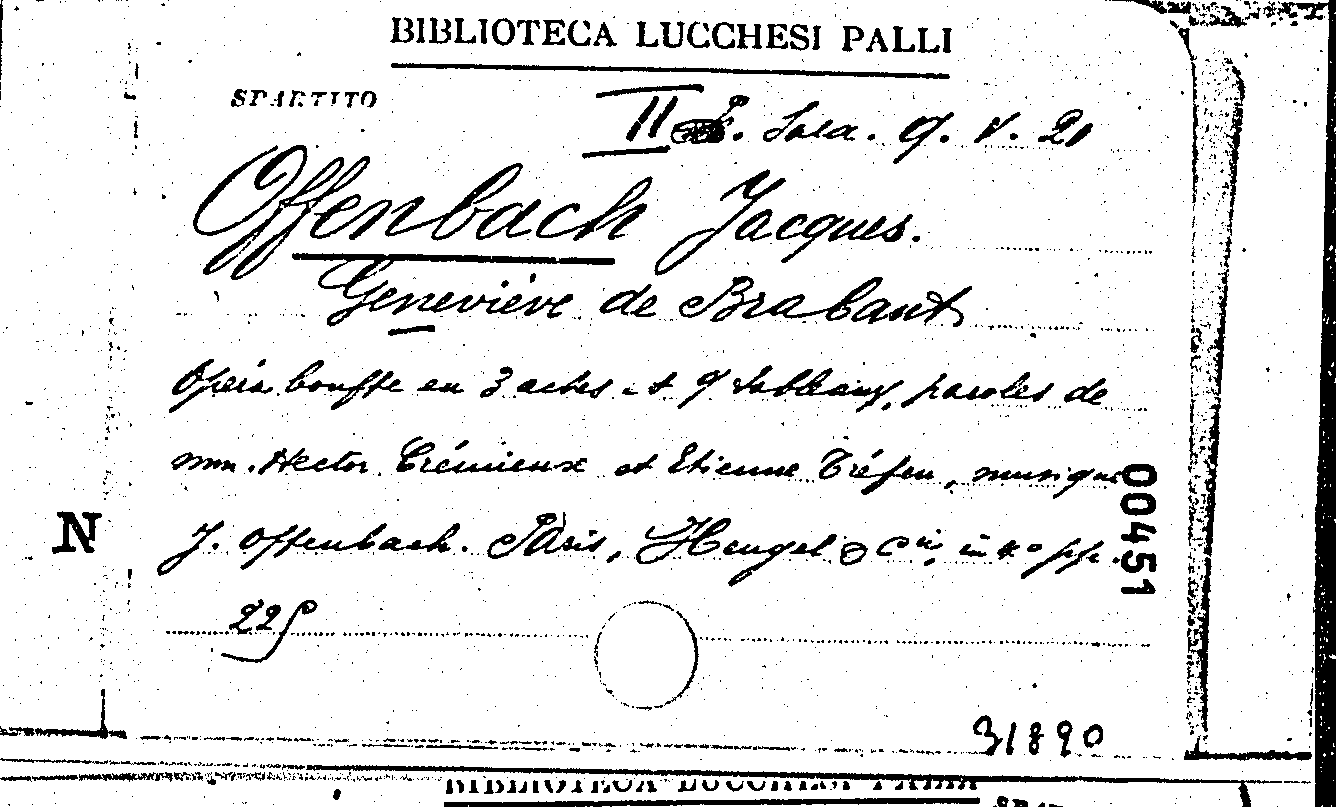 BIBLIOTECA LUCCHESI PALLI
SPARTITO
II Sala. 9. V. 21
Offenbach Jacques.
Geneviève de Brabant
Opéra bouffe en 3 actes et 9 tableaux, paroles de
mm. Hector Crémieux et Etienne Tréfeu, musique
J. Offenbach. Paris, Heugel & Cie, in 4º pp.
N
00451
31890
BIBLIOTECA LUCCHESI PALLI